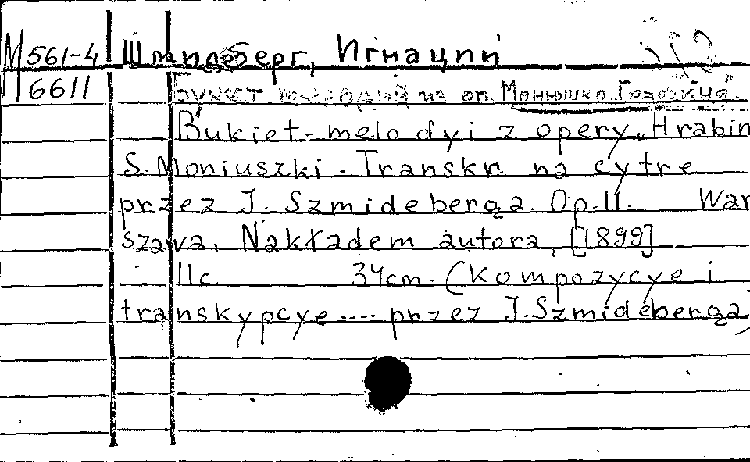 М 561-4 Шмидеберг, Игнаций
6611 Букет мелодий из оп. Монюшко
Bukiet melodyi z opery „Hrabin
S. Moniuszki. Transkr. na cytrę
przez J. Szmideberga. Op. 11. War
szawa, Nakładem autora, [1899]
11c. 34cm. (Kompozycye i
transkypcye.... przez J. Szmideberga,